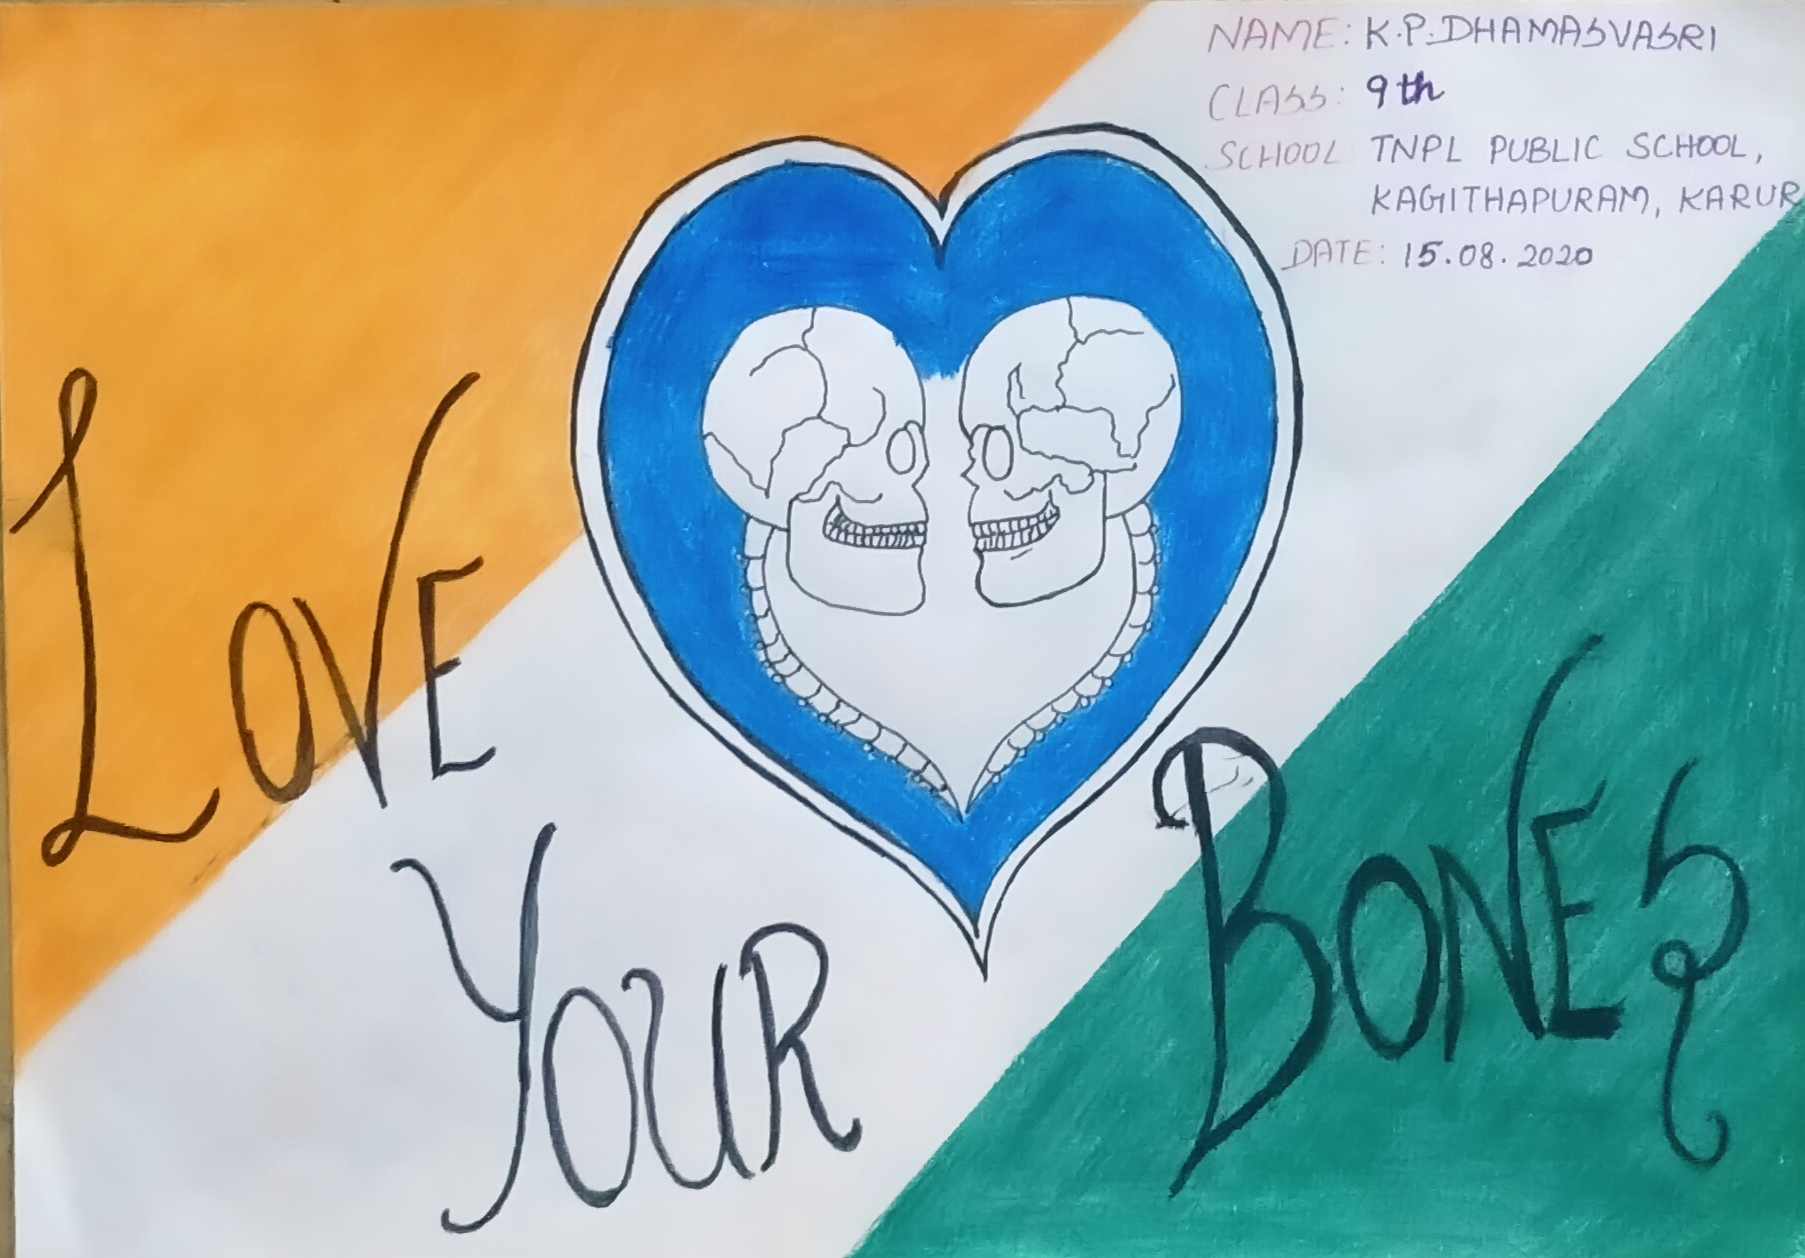 NAME: K.P.DHAMASVASRI
CLASS: 9th
SCHOOL TNPL PUBLIC SCHOOL,
KAGITHAPURAM, KARUR
DATE: 15.08.2020
LOVE
YOUR
BONES